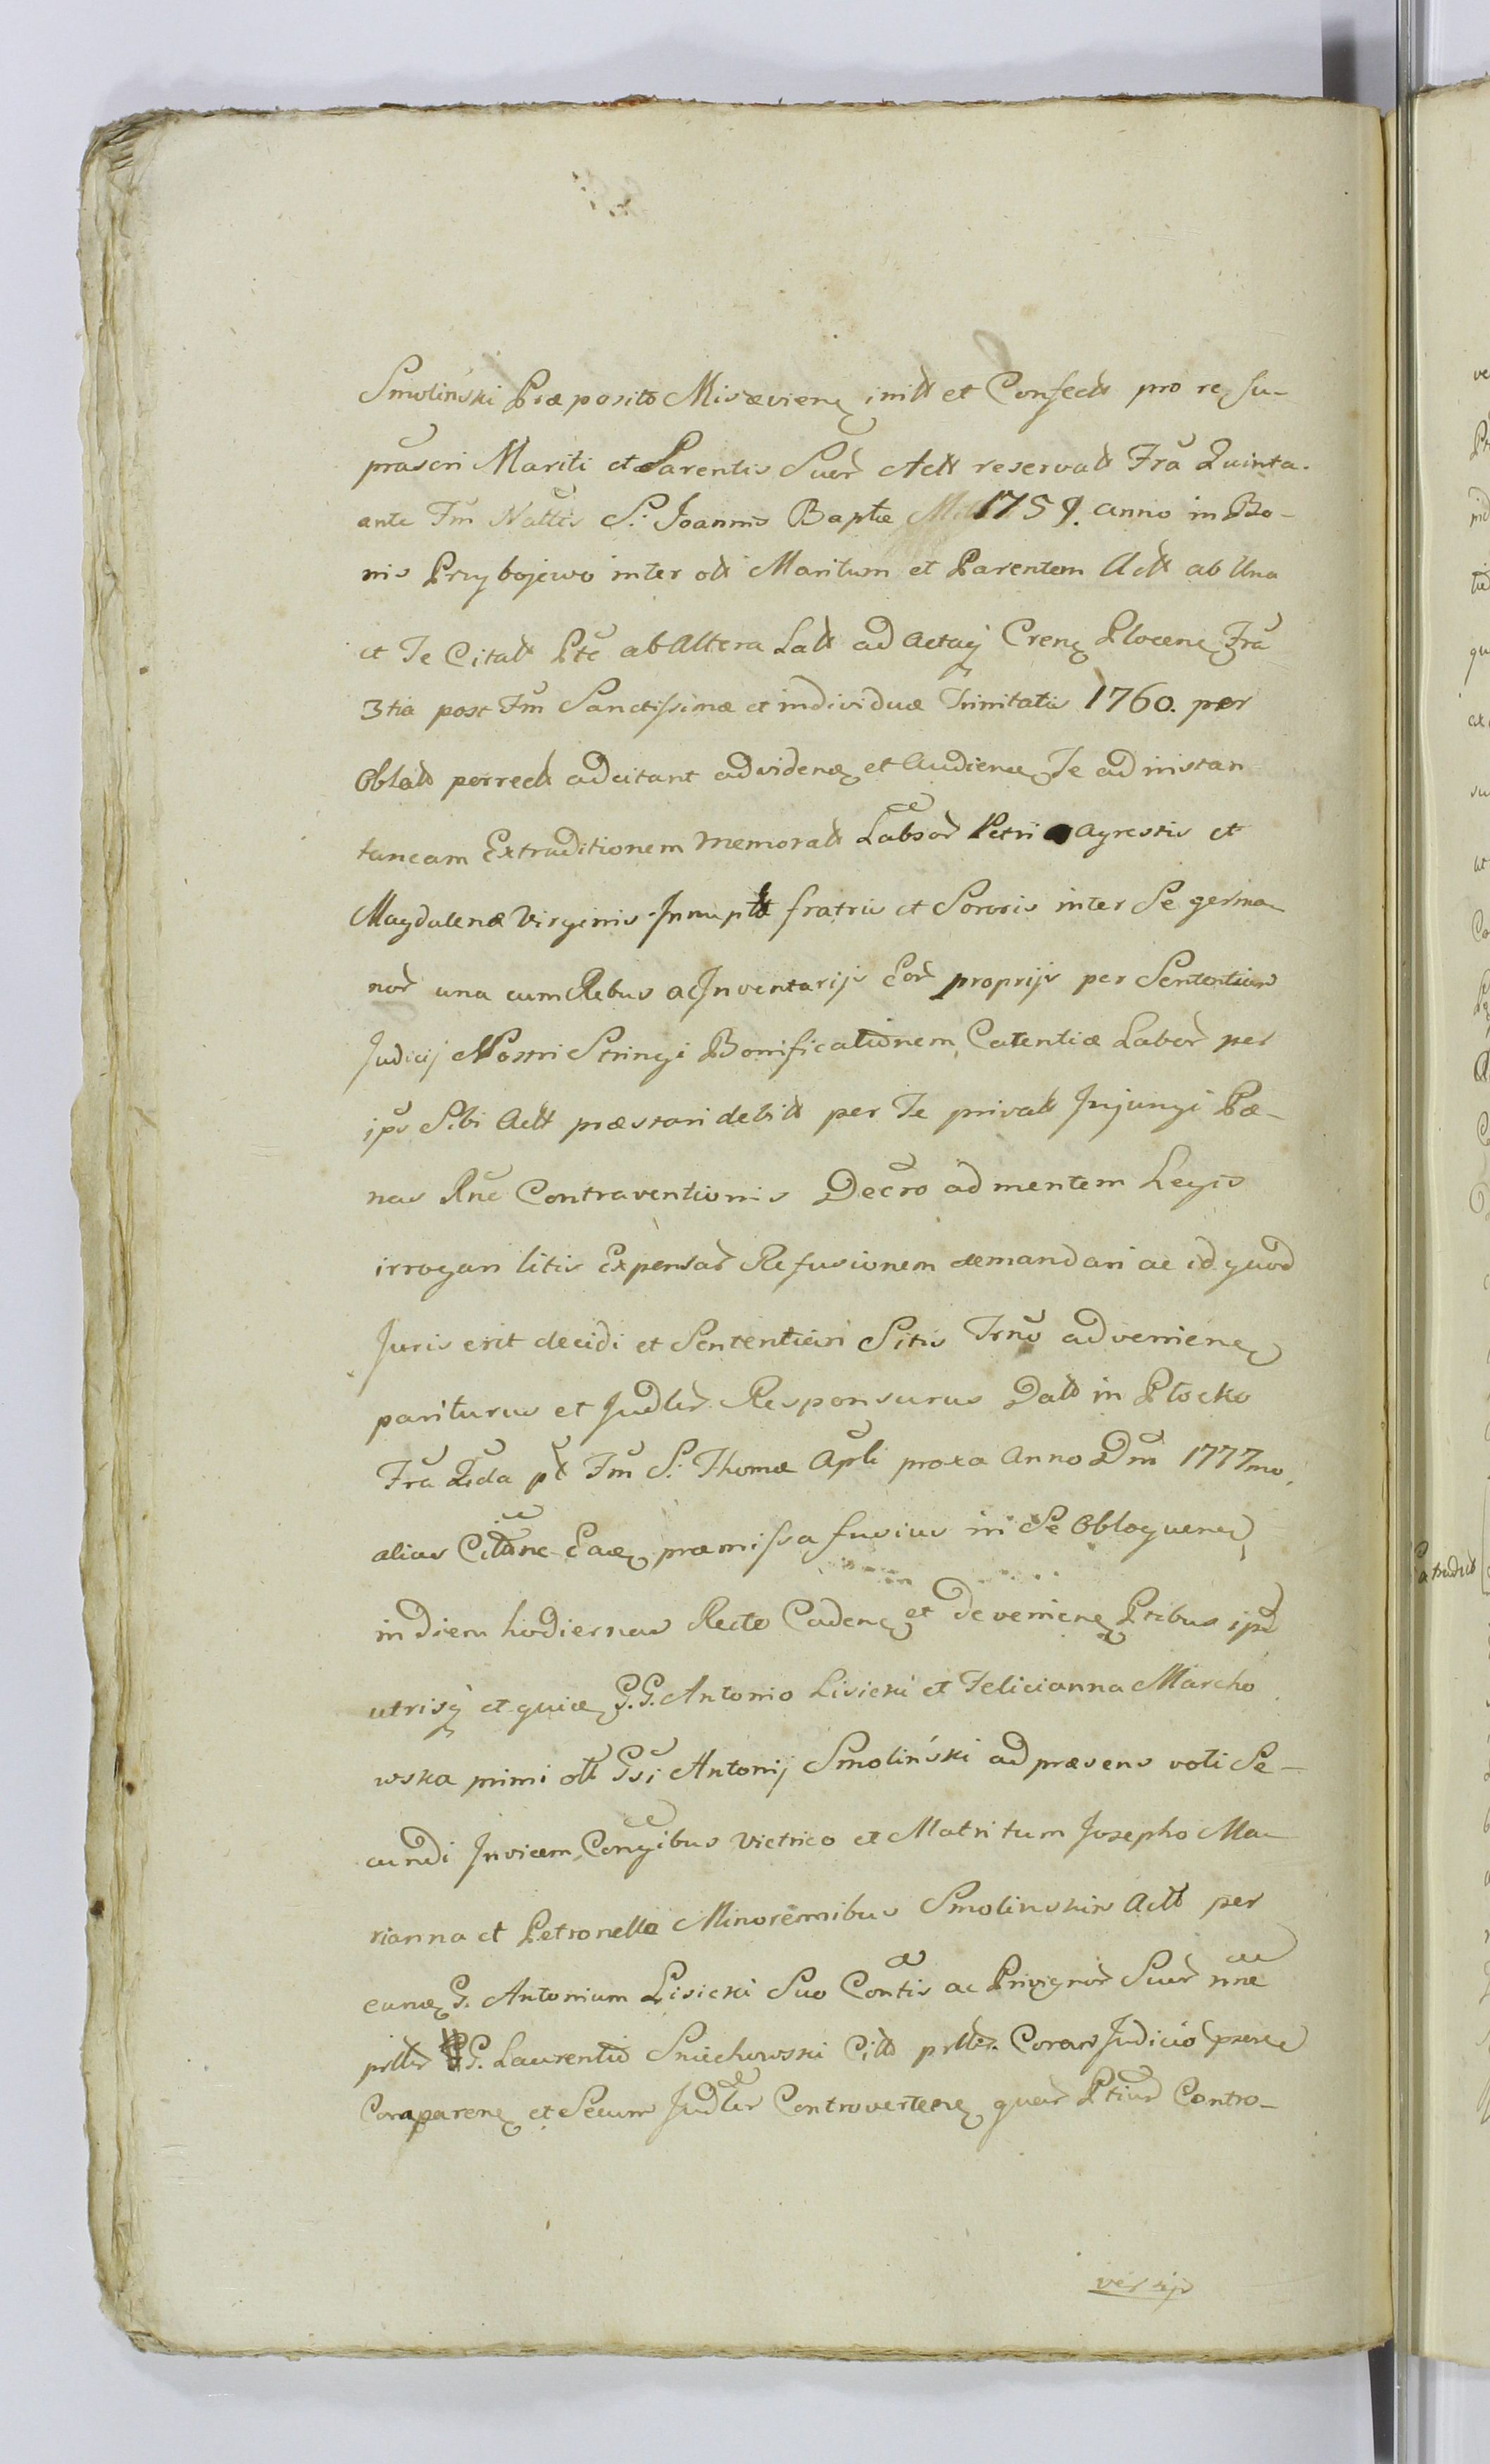 Smoliński Præposito Misævienę init et Confect pro re su-
prascri Mariti et Parentis Suor Act reservat Fra Quinta.
ante Fm Nattis S. Joannis Baptæ 1759. anno in Bo-
nis Przybojewo inter olt Maritum et Parentem Act ab Una
et Te Citalt Pte ab Altera Lalt ad Acta Crenę Plocenę Fra
3tia post Fm Sanctissimæ et individuæ Trinitatis 1760. per
Oblalt porrect adcitant ad videnę et Audienę Te ad instan
taneam Extraditionem memoralt Labsor Petri Agrestis et
Magdalenæ Virginis Innuptæ fratris et Sororis inter Se germa-
nor una cum Rebus ac Inventarijs Eor proprijs per Sententiam
Judicij Nostri Stringi Bonificationem Catentiæ Labor per
ips Sibi Act præstari debit per Te privalt Injungi Pœ-
nas Rne Contraventionis Decro ad mentem Legis
irrogari litis Expensar Refusionem demandari ac id quod
Juris erit decidi et Sententiari Sitis Trno advenienę
pariturus et Judler Responsurus Dalt in Plocko
Fra 2da pt Fm S. Thomæ Apli proxa Anno Dni 1777mo.
alias Citane Eaę præmissa fusius in Se Obloquenę
in diem hodiernam Recte Cadenę et devenienę Ptibus ips
utrisq et quiaę G.G. Antonio Lisicki et Felicianna Marcho
wska primi olt Gsi Antonij Smoliński ad præsens voti Se-
cundi Invicem Congibus Vietrico et Matri tum Josepho Ma-
rianna et Petronella Minorennibus Smolinskis Act per
eunę G. Antonium Lisicki Suo Contis ac Privignor Suor nne
prlter G. Laurentio Sniechowski Citt prlter. Coram Judicio præse
Comparenę et Secum Judler Controvertenę quar Ptium Contro-
versijs